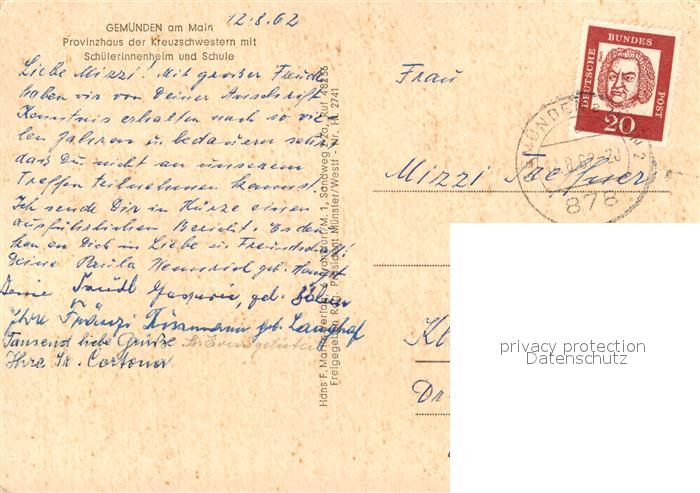 12.8.62
GEMÜNDEN am Main
Provinzhaus der Kreuzschwestern mit
Schülerinnenheim und Schule
Liebe Mizzi! Mit großer Freude
haben wir von Deiner Anschrift
Kenntnis erhalten nach so vie-
len Jahren u. bedauern sehr
daß Du nicht an unserem
Treffen teilnehmen kannst.
Ich sende Dir in Kürze einen
ausführlichen Bericht. Es den-
ken an Dich in Liebe u. Freundschaft!
Deine Paula geb.
Deine geb.
Ihre Fränzi geb. Langhof
Tausend liebe Grüße
Ihre Sr.
Hans F. Sandweg Ruf 48236
Freigegeben Reg. Präsident Münster/Westf. Nr. HL 2741
DEUTSCHE BUNDES POST
20
878
Frau
Mizzi
Kl
Dr
privacy protection
Datenschutz